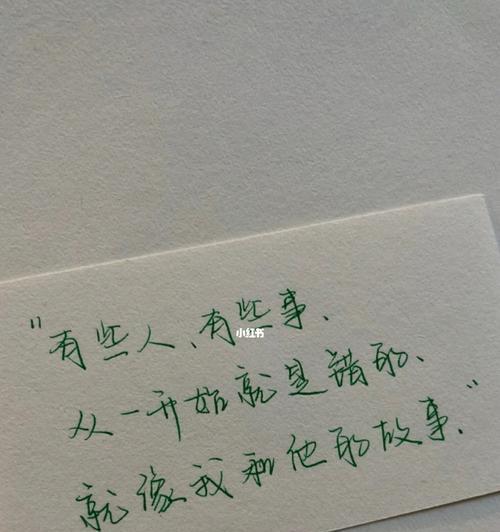 "有些人、有些事、
小红书
从一开始就是错的、
就像我和他的故事."